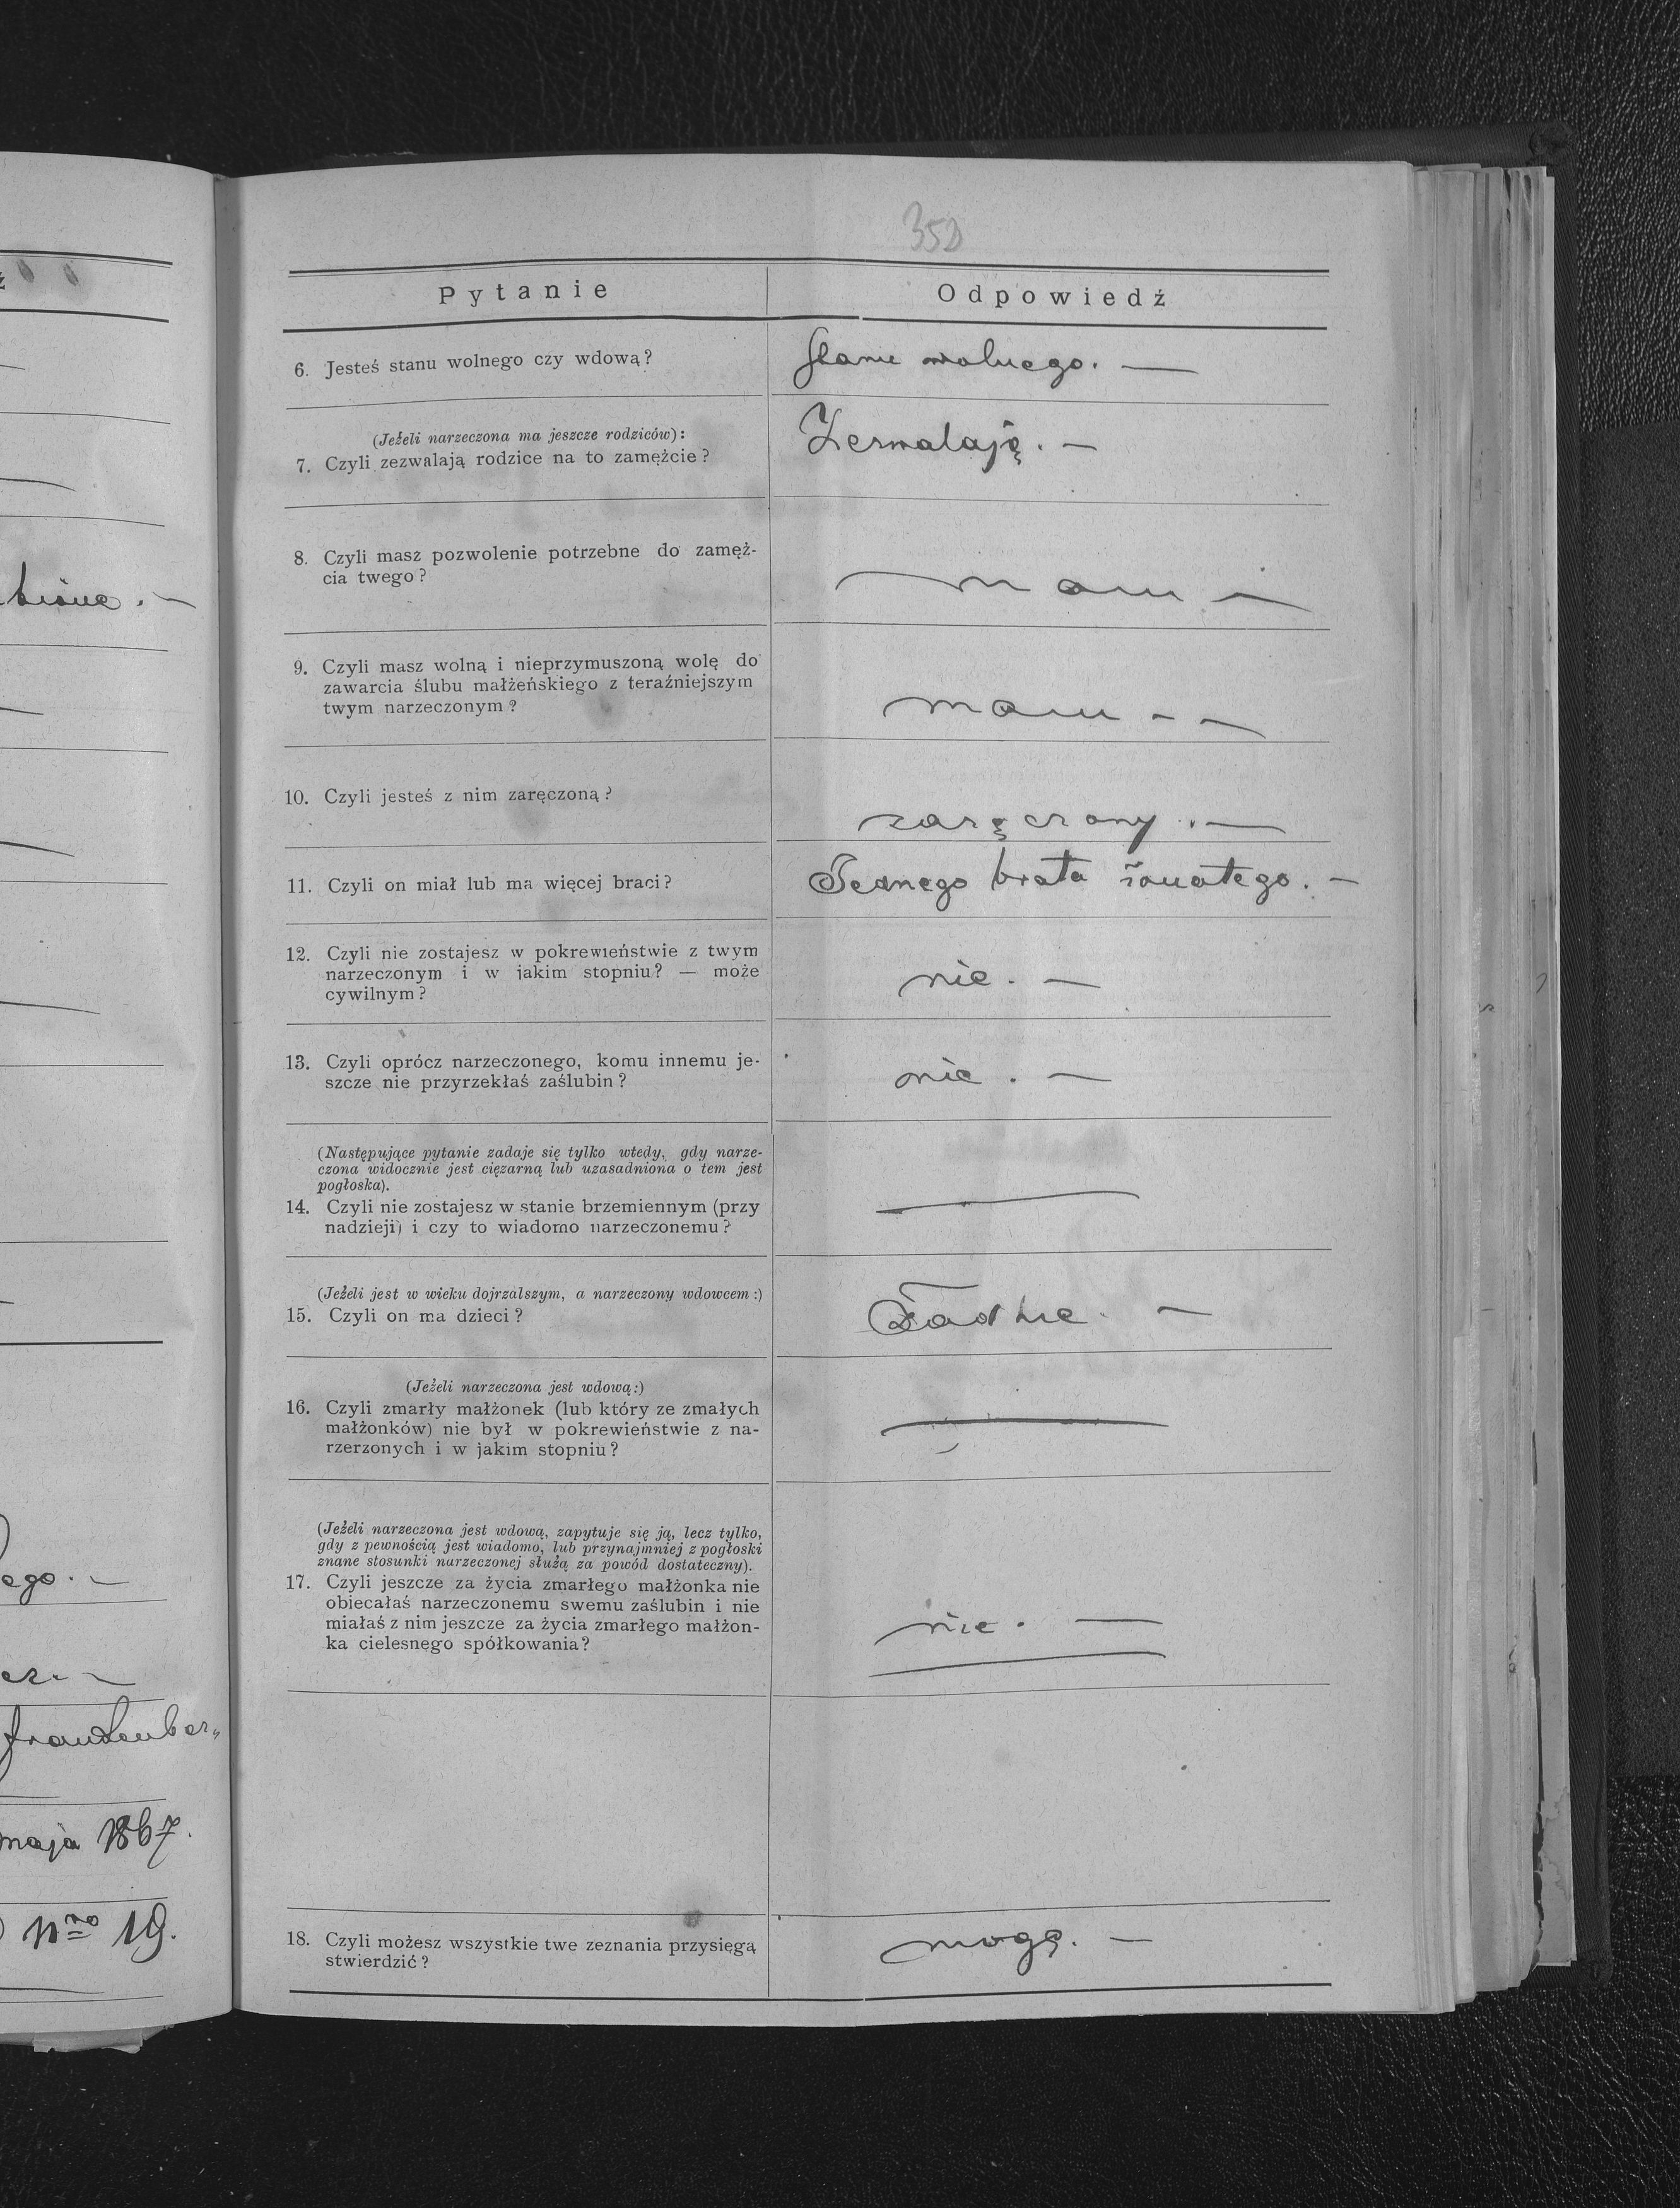 350
Pytanie
Odpowiedź
6. Jesteś stanu wolnego czy wdową?
Stanu wolnego. —
(Jeżeli narzeczona ma jeszcze rodziców):
7. Czyli zezwalają rodzice na to zamężcie?
Zezwalają. —
8. Czyli masz pozwolenie potrzebne do zamęż-
cia twego?
mam —
9. Czyli masz wolną i nieprzymuszoną wolę do
zawarcia ślubu małżeńskiego z teraźniejszym
twym narzeczonym?
mam - -
10. Czyli jesteś z nim zaręczoną?
zaręczony. —
11. Czyli on miał lub ma więcej braci?
Jednego brata żonatego. —
12. Czyli nie zostajesz w pokrewieństwie z twym
narzeczonym i w jakim stopniu? — może
cywilnym?
nie. —
13. Czyli oprócz narzeczonego, komu innemu je-
szcze nie przyrzekłaś zaślubin?
nie. —
(Następujące pytanie zadaje się tylko wtedy, gdy narze-
czona widocznie jest ciężarną lub uzasadniona o tem jest
pogłoska).
14. Czyli nie zostajesz w stanie brzemiennym (przy
nadzieji) i czy to wiadomo narzeczonemu?
—
(Jeżeli jest w wieku dojrzalszym, a narzeczony wdowcem:)
15. Czyli on ma dzieci?
Żadne. —
(Jeżeli narzeczona jest wdową:)
16. Czyli zmarły małżonek (lub który ze zmałych
małżonków) nie był w pokrewieństwie z na-
rzerzonych i w jakim stopniu?
—
(Jeżeli narzeczona jest wdową, zapytuje się ją, lecz tylko,
gdy z pewnością jest wiadomo, lub przynajmniej z pogłoski
znane stosunki narzeczonej służą za powód dostateczny).
17. Czyli jeszcze za życia zmarłego małżonka nie
obiecałaś narzeczonemu swemu zaślubin i nie
miałaś z nim jeszcze za życia zmarłego małżon-
ka cielesnego spółkowania?
nie. —
18. Czyli możesz wszystkie twe zeznania przysięgą
stwierdzić?
mogę. —
ego. —
maja 1867.
Nro 19.